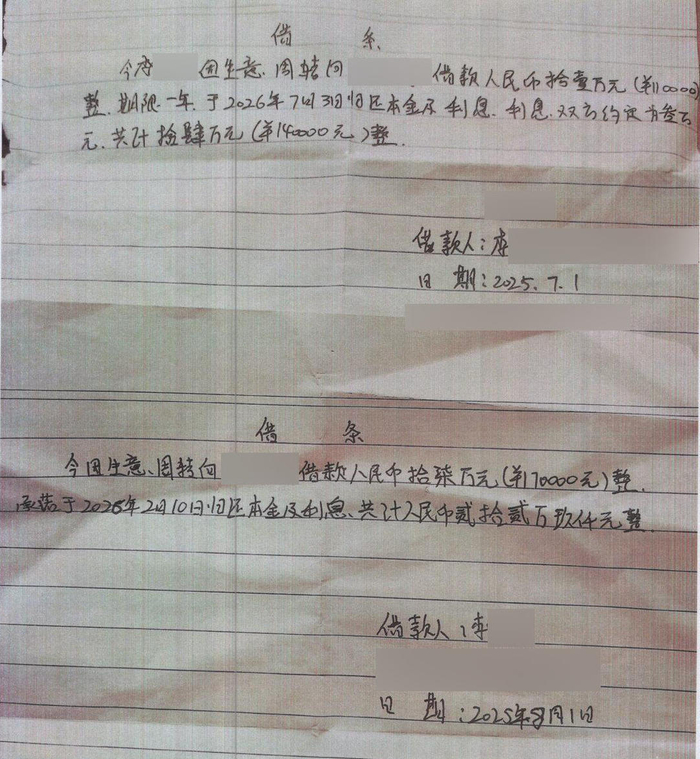 借 条
今 李 因生意、周转向 借款人民币拾壹万元(¥110000)
整.期限一年.于2026年7月31日归还本金及利息.利息双方约定为叁万
元.共计拾肆万元(¥140000元)整.
借款人:李
日 期:2025.7.1
借 条
今因生意、周转向 借款人民币拾柒万元(¥170000元)整.
承诺于2026年2月10日归还本金及利息、共计人民币贰拾贰万玖仟元整
借款人:李
日 期:2025年8月1日